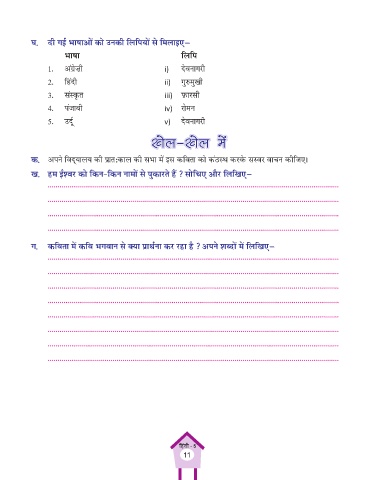 घ. दी गई भाषाओं को उनकी लिपियों से मिलाइए–
भाषा लिपि
1. अंग्रेज़ी i) देवनागरी
2. हिंदी ii) गुरुमुखी
3. संस्कृत iii) फ़ारसी
4. पंजाबी iv) रोमन
5. उर्दू v) देवनागरी
खेल–खेल में
क. अपने विद्यालय की प्रात:काल की सभा में इस कविता को कंठस्थ करके सस्वर वाचन कीजिए।
ख. हम ईश्वर को किन-किन नामों से पुकारते हैं ? सोचिए और लिखिए–
ग. कविता में कवि भगवान से क्या प्रार्थना कर रहा है ? अपने शब्दों में लिखिए–
हिंदी - 5
11